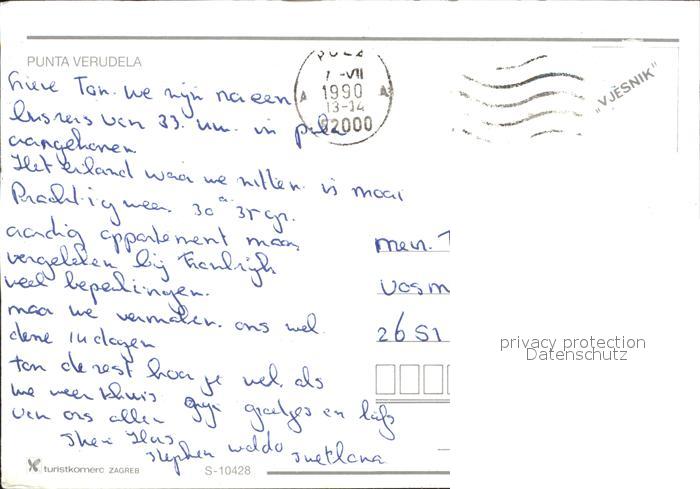 PUNTA VERUDELA
PULA
7 -VII
1990
13-14
52000
"VJESNIK"
Lieve Ton. we zijn na een
busreis van 33. uur. in pula
aangekomen
Het eiland waar we zitten is mooi
Prachtig weer 30 a 35 gr.
aardig appartement maar
vergeleken bij Frankrijk
veel beperkingen.
maar we vermaken ons wel
deze 10 dagen
Ton de rest hoor je wel als
we weer thuis zijn groetjes en liefs
van ons allen
Hans
stephen waldo svetlana
mevr. T
Vosm
26 S1
privacy protection
Datenschutz
turistkomerc ZAGREB
S-10428